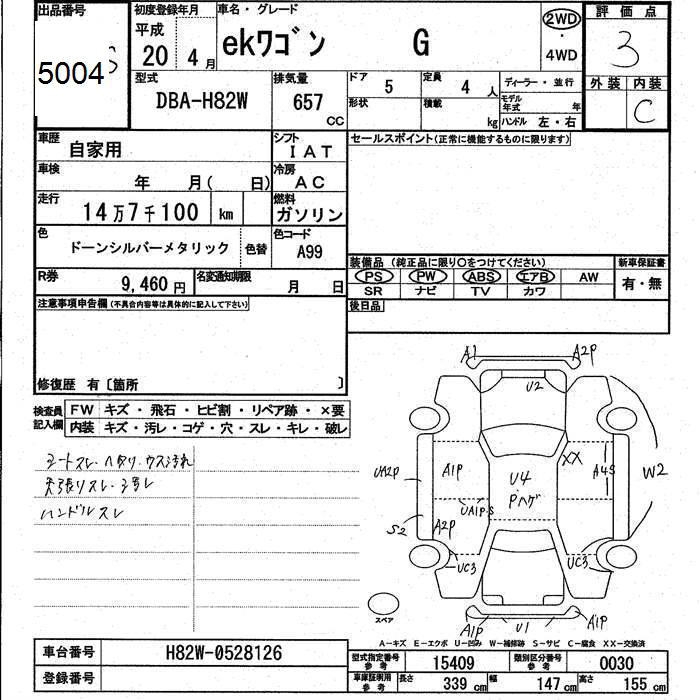 出品番号 初度登録年月 車名・グレード 評価点
50043
平成 20年 4月
ekワゴン G
2WD
・
4WD
3
型式 排気量 ドア 5 定員 4人 ディーラー・並行
外装 内装
DBA-H82W 657 CC
形状 積載 kg モデル年式 年
ハンドル 左・右
C
車歴 自家用 シフト IAT
セールスポイント(正常に機能するものに限ります)
車検 年 月( 日) 冷房 AC
走行 14万7千100 km 燃料 ガソリン
色 ドーンシルバーメタリック 色替 色コード A99
装備品(純正品に限り○をつけてください) 新車保証書
R券 9,460円 名変通知期限 月 日
PS PW ABS エアB AW 有・無
SR ナビ TV カワ
注意事項申告欄(不具合内容等は具体的に記入して下さい)
後日品
修復歴 有〔箇所 〕
検査員記入欄
FW キズ・飛石・ヒビ割・リペア跡・×要
内装 キズ・汚レ・コゲ・穴・スレ・キレ・破レ
シートスレ・ヘタリ・ウス汚れ
天張りスレ・ヨゴレ
ハンドルスレ
A1 A2P
U2
UA2P A1P U4 XX A4S W2
Pハゲ
UA1P-S
S2 A2P
UC3 UC3
A1P U1 A1P
スペア
A-キズ E-エクボ U-凹み W-補修跡 S-サビ C-腐食 XX-交換済
車台番号 H82W-0528126
型式指定番号 参考 15409 類別区分番号 参考 0030
登録番号
車庫証明用 参考 長さ 339cm 幅 147cm 高さ 155cm